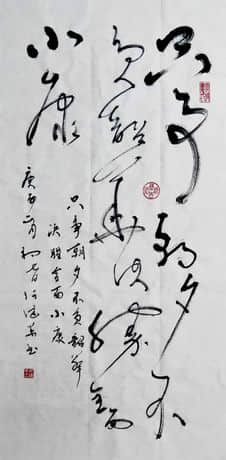 只争朝夕不
负韶华决胜全面
小康
只争朝夕不负韶华
决胜全面小康
庚子二月初七日书